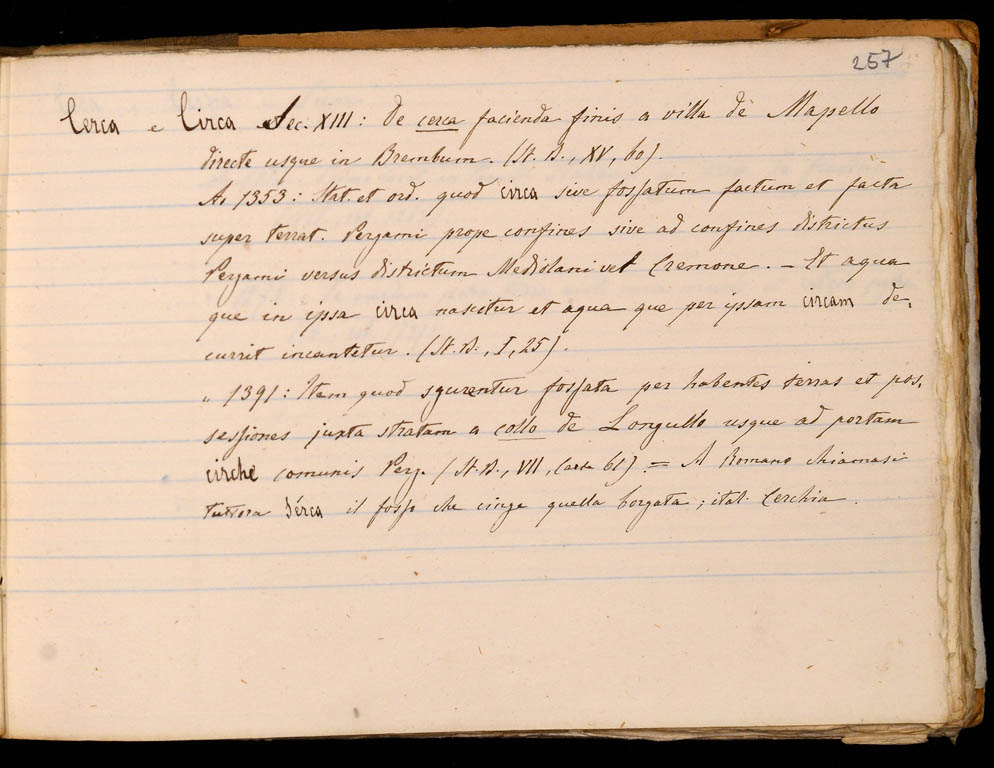 257
Cerca e Circa Sec. XIII: De cerca facienda finis a villa de Mapello
directe usque in Brembum. (St. B., XV, 60).
A. 1353: Stat. et ord. quod circa sive fossatum factum et facta
super terrat. Pergami prope confines sive ad confines districtus
Pergami versus districtum Mediolani vel Cremone. – Et aqua
que in ipsa circa nascitur et aqua que per ipsam circam de-
currit incantetur. (St. B., I, 25).
„ 1391: Item quod sgurentur fossata per habentes terras et pos-
sessiones juxta stratam a collo de Longullo usque ad portam
cirche comunis Perg. (St. B., VII, carta 61) = A Romano chiamasi
tuttora Sérca il fosso che cinge quella borgata; ital. Cerchia.